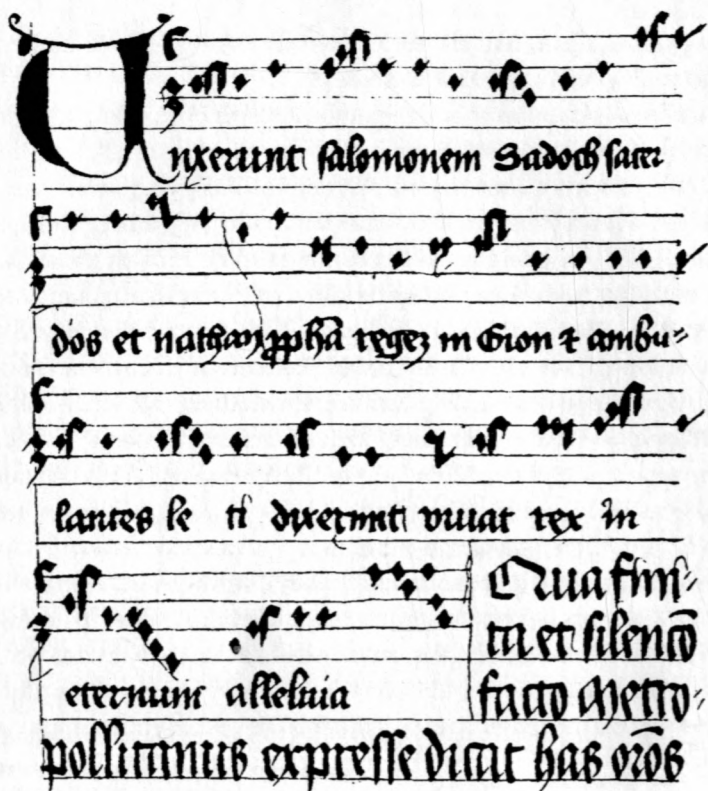 Unxerunt salomonem Sadoch sacer
dos et nathan ꝓph̄a regez in Gion ⁊ ambu⸗
lantes le ti dixerunt viuat rex in
eternum alleluia
Qua fini⸗
ta et silencō
facto Metro⸗
pollitanus expresse dicat has or̄ōs